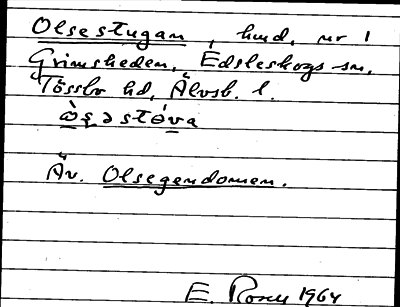 Olsestugan, hmd. nr 1
Grimsheden, Edsleskogs sn,
Tössbo hd, Älvsb. l.
Äv. Olsegendomen.
E. Rosen 1964